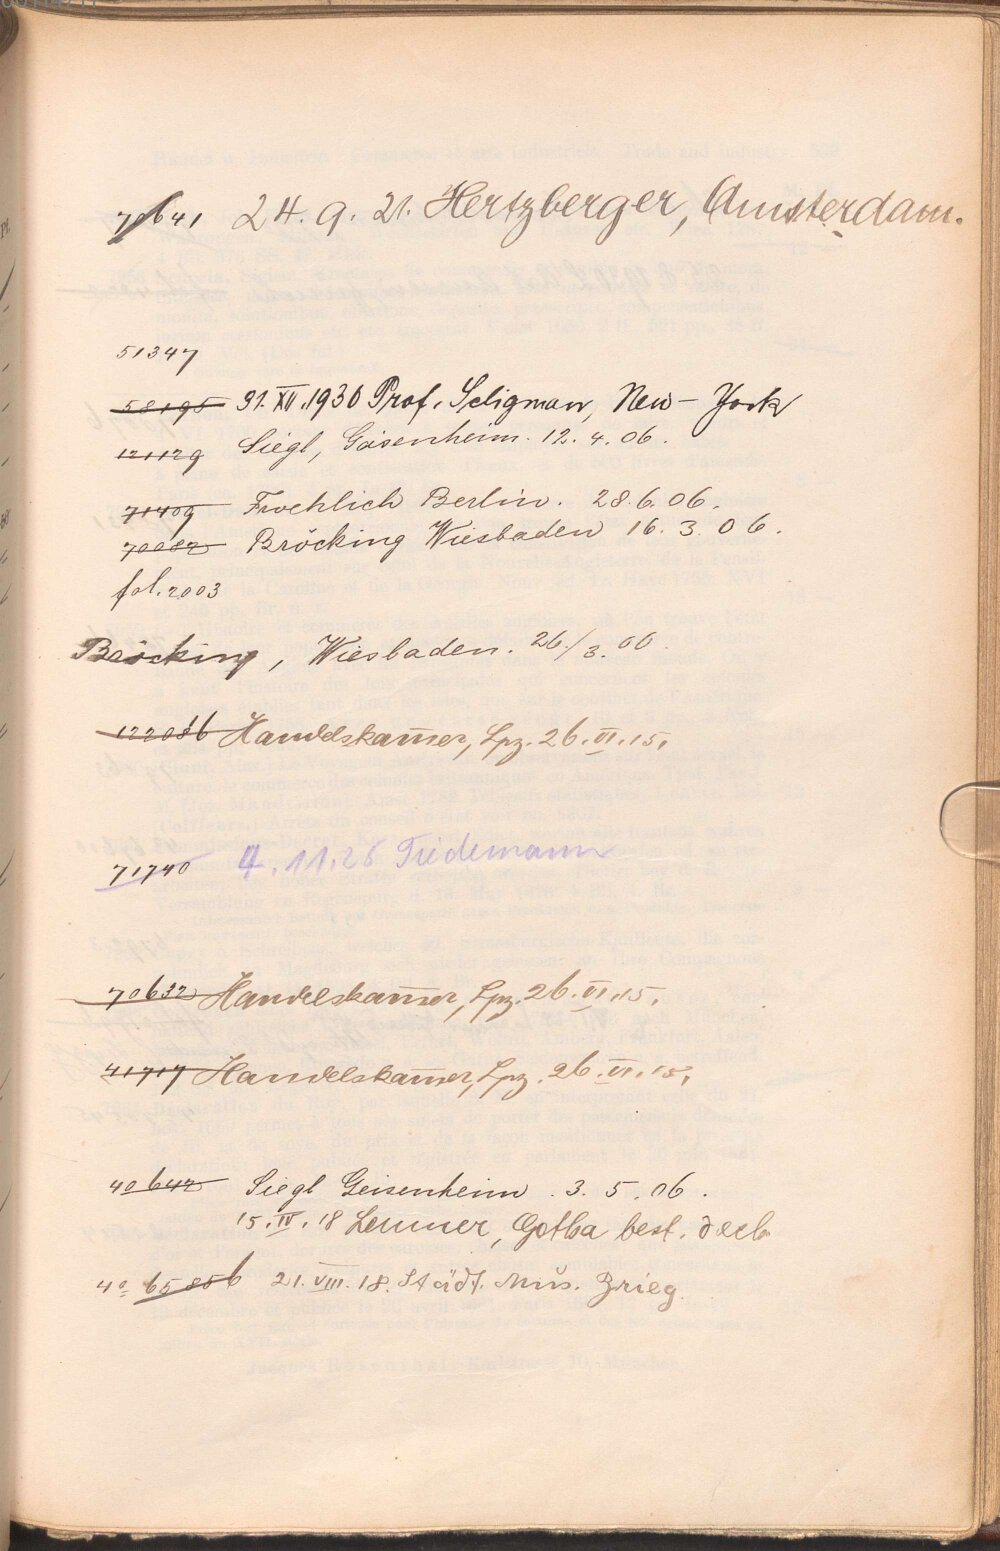 70641 24. 9. 21. Hertzberger, Amsterdam.
51347
58195 31. XII. 1930 Prof. Seligman, New-York
121129 Siegl, Gaisenheim. 12. 4. 06.
71409 Froehlich Berlin. 28.6.06.
70082 Bröcking Wiesbaden 16. 3. 06.
fol. 2003
Bröcking, Wiesbaden. 26./3. 06.
122086 Handelskam̅er, Lpz. 26. VI. 15.
71740 4. 11. 26 Tiedemann
70632 Handelskam̅er, Lpz. 26. VI. 15.
41717 Handelskam̅er, Lpz. 26. VI. 15.
40642 Siegl Geisenheim. 3. 5. 06.
15. IV. 18 Gotha best.
4° 65856 21. VIII. 18. Städt. Mus. Brieg.